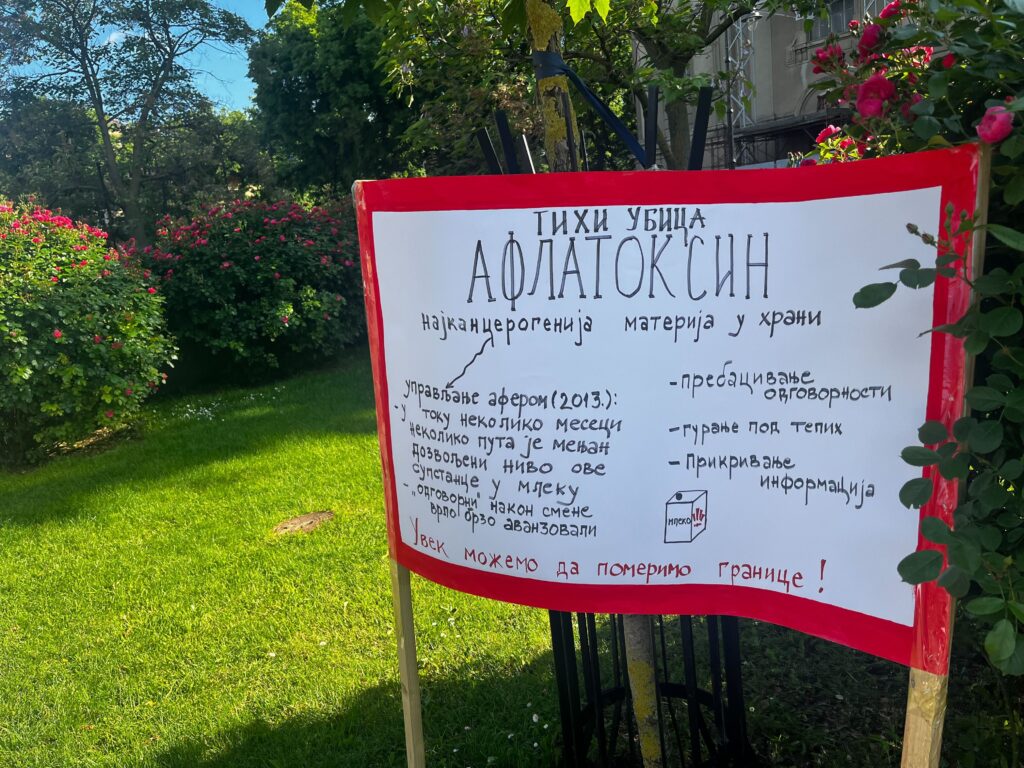 ТИХИ УБИЦА
АФЛАТОКСИН
најканцерогенија материја у храни
управљање афером (2013.):
- у току неколико месеци
неколико пута је мењан
дозвољени ниво ове
супстанце у млеку
- „одговорни" након смене
врло брзо аванзовали
- пребацивање
одговорности
- гурање под тепих
- Прикривање
информација
млеко
Увек можемо да померимо границе!